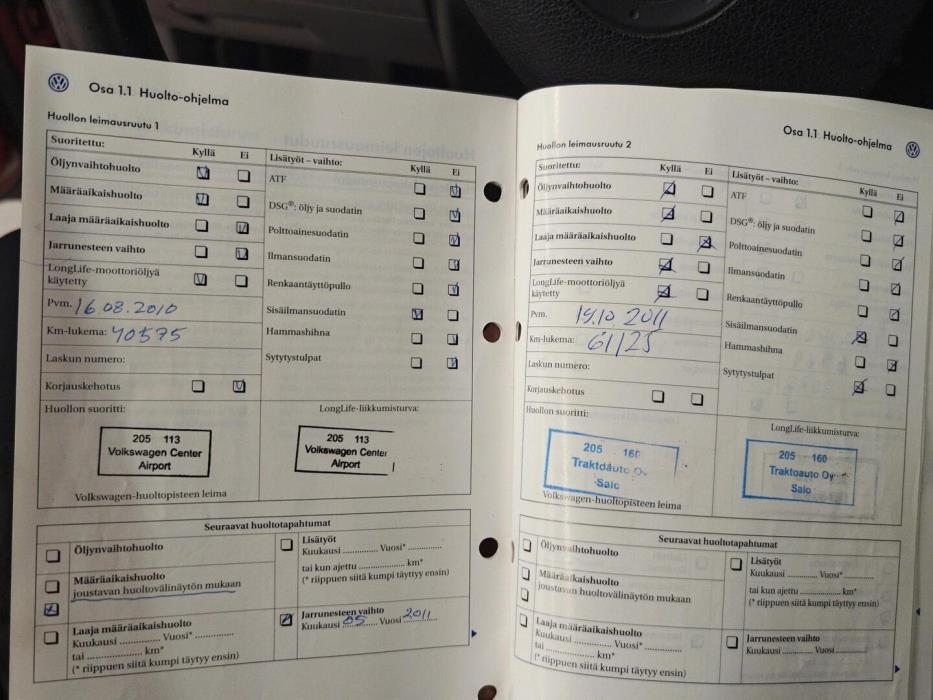 Osa 1.1 Huolto-ohjelma
Huollon leimausruutu 1
Suoritettu: Kyllä Ei
Öljynvaihtohuolto
Määräaikaishuolto
Laaja määräaikaishuolto
Jarrunesteen vaihto
LongLife-moottoriöljyä
käytetty
Pvm. 16.08.2010
Km-lukema: 40575
Laskun numero:
Korjauskehotus
Lisätyöt – vaihto: Kyllä Ei
ATF
DSG®: öljy ja suodatin
Polttoainesuodatin
Ilmansuodatin
Renkaantäyttöpullo
Sisäilmansuodatin
Hammashihna
Sytytystulpat
Huollon suoritti:
205 113
Volkswagen Center
Airport
Volkswagen-huoltopisteen leima
LongLife-liikkumisturva:
205 113
Volkswagen Center
Airport
Seuraavat huoltotapahtumat
Öljynvaihtohuolto
Määräaikaishuolto
joustavan huoltovälinäytön mukaan
Laaja määräaikaishuolto
Kuukausi .............. Vuosi* ..............
tai .................... km*
(* riippuen siitä kumpi täytyy ensin)
Lisätyöt
Kuukausi .............. Vuosi* ..............
tai kun ajettu .................... km*
(* riippuen siitä kumpi täytyy ensin)
Jarrunesteen vaihto
Kuukausi 05 Vuosi 2011
Osa 1.1 Huolto-ohjelma
Huollon leimausruutu 2
Suoritettu: Kyllä Ei
Öljynvaihtohuolto
Määräaikaishuolto
Laaja määräaikaishuolto
Jarrunesteen vaihto
LongLife-moottoriöljyä
käytetty
Pvm. 19.10 2011
Km-lukema: 61125
Laskun numero:
Korjauskehotus
Lisätyöt – vaihto: Kyllä Ei
ATF
DSG®: öljy ja suodatin
Polttoainesuodatin
Ilmansuodatin
Renkaantäyttöpullo
Sisäilmansuodatin
Hammashihna
Sytytystulpat
Huollon suoritti:
205 160
Traktoauto Oy
Salo
Volkswagen-huoltopisteen leima
LongLife-liikkumisturva:
205 160
Traktoauto Oy
Salo
Seuraavat huoltotapahtumat
Öljynvaihtohuolto
Määräaikaishuolto
joustavan huoltovälinäytön mukaan
Laaja määräaikaishuolto
Kuukausi .............. Vuosi* ..............
tai .................... km*
(* riippuen siitä kumpi täytyy ensin)
Lisätyöt
Kuukausi .............. Vuosi* ..............
tai kun ajettu .................... km*
(* riippuen siitä kumpi täytyy ensin)
Jarrunesteen vaihto
Kuukausi .............. Vuosi ..............